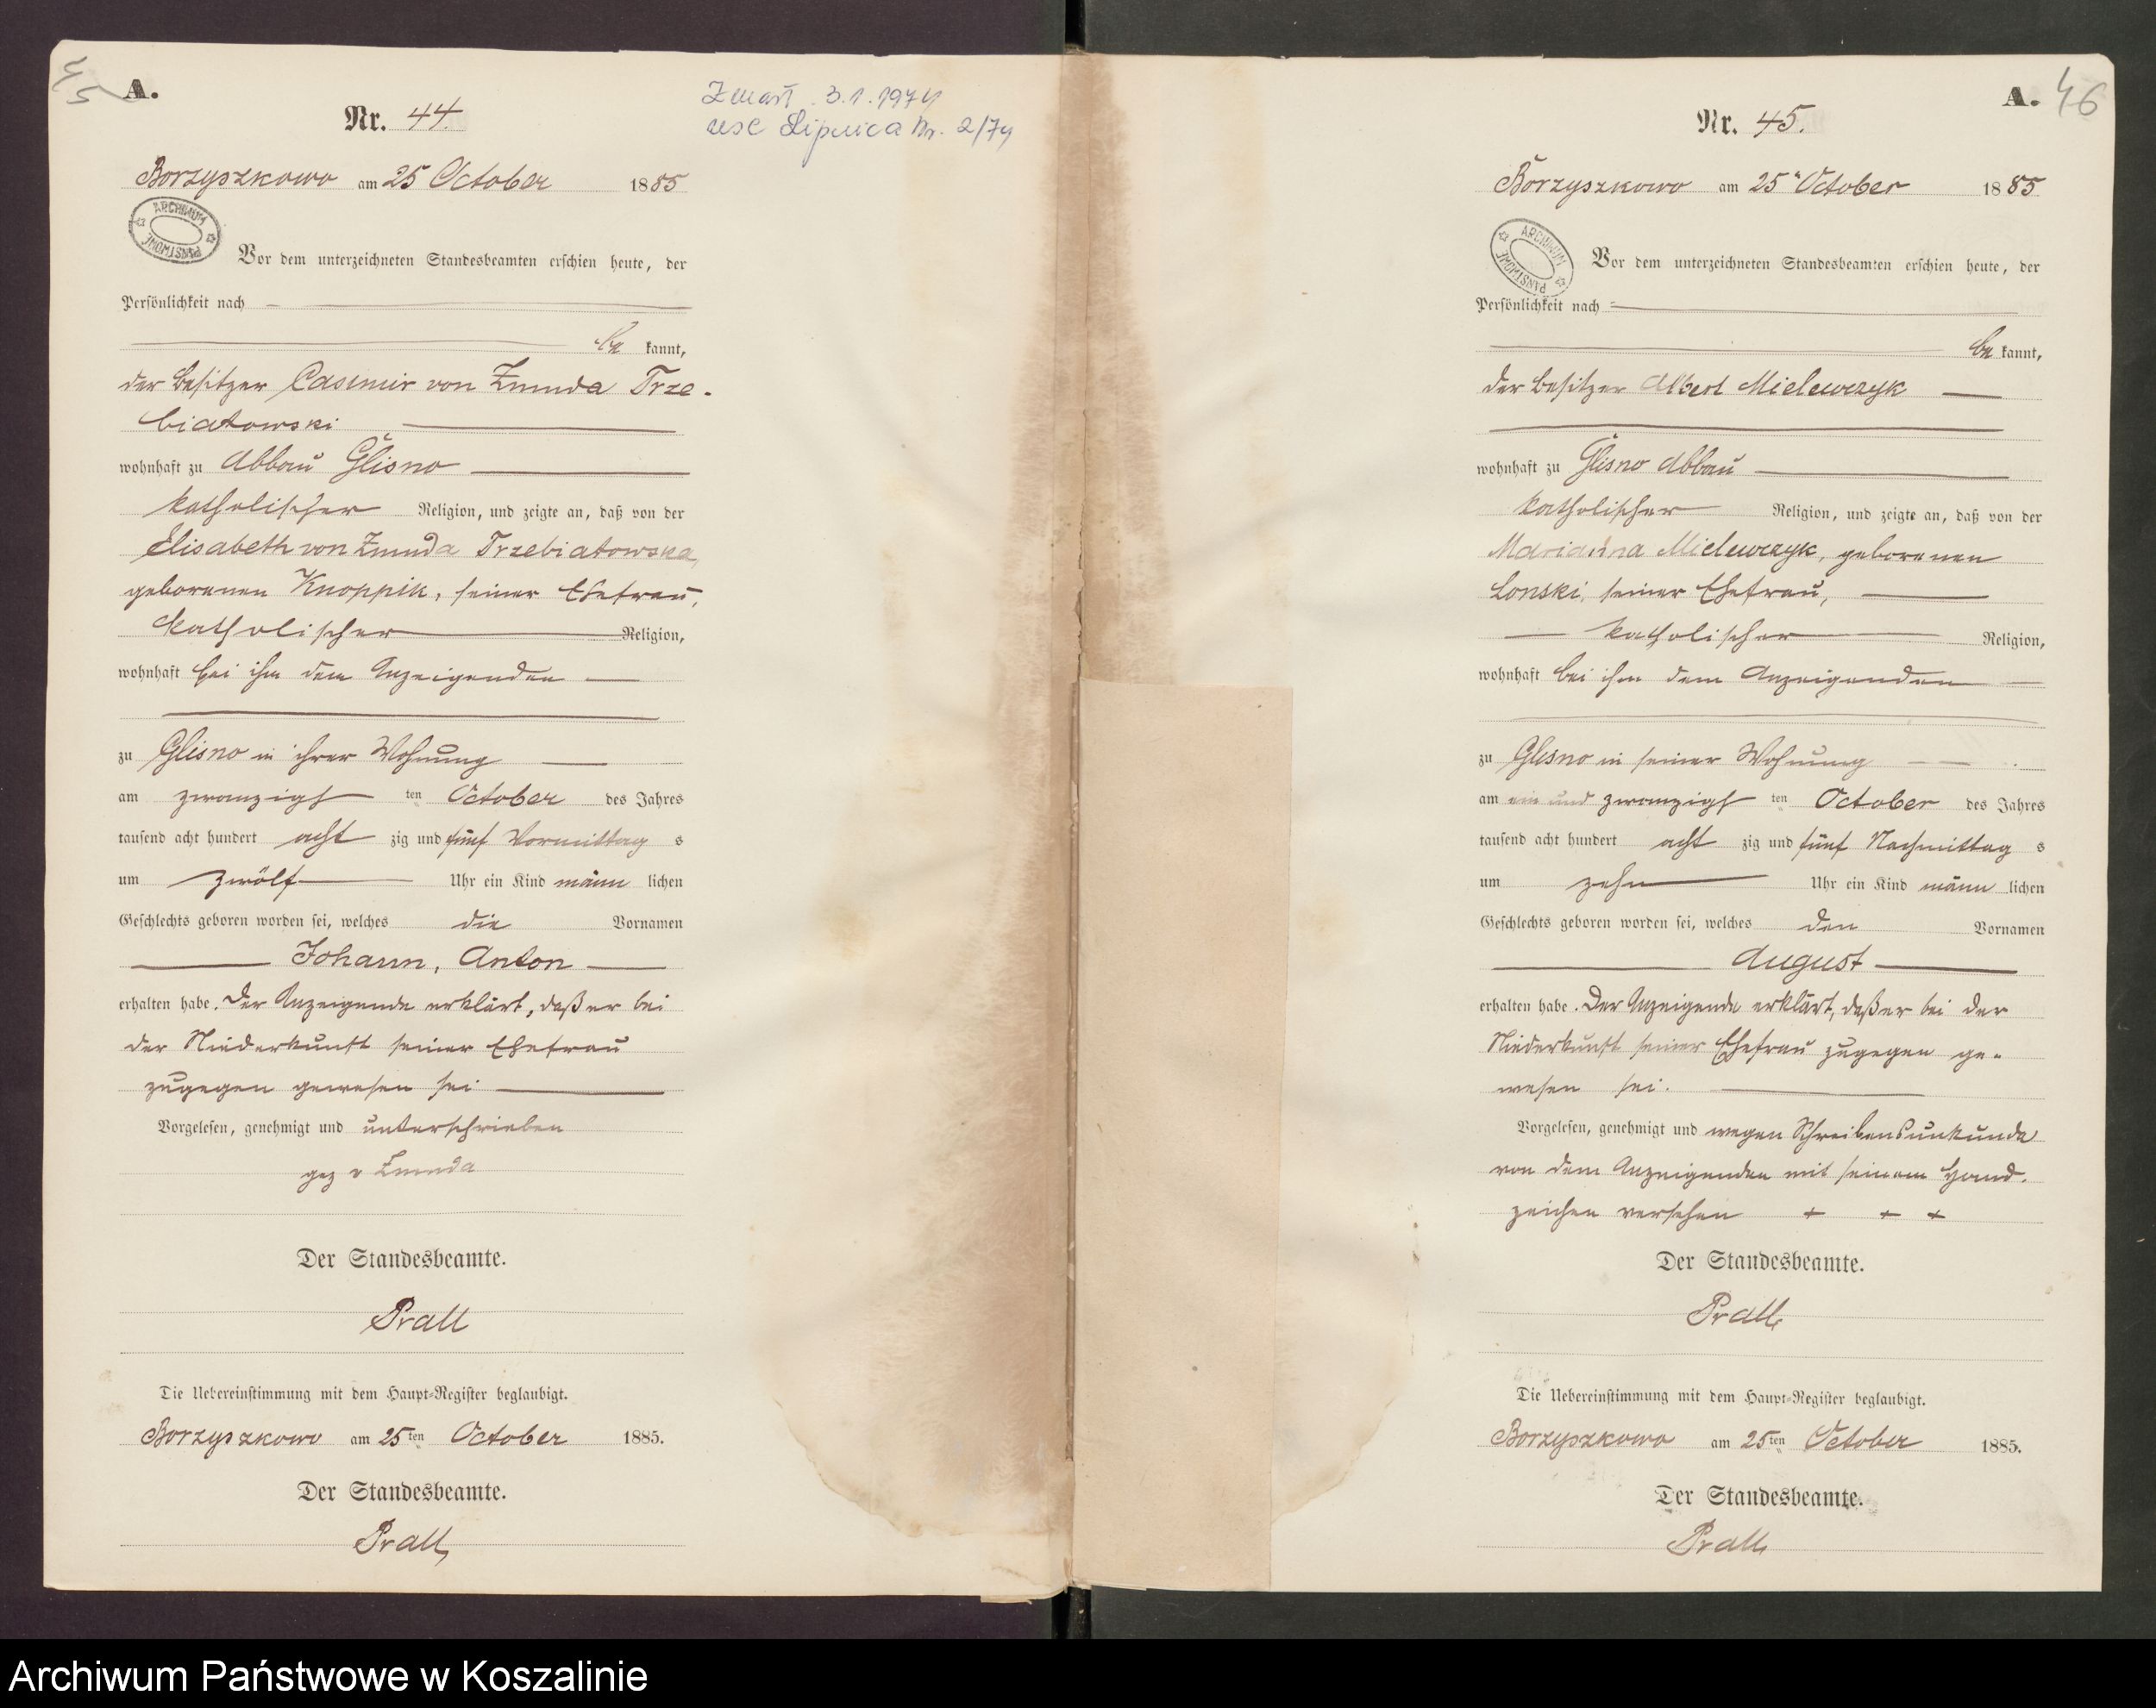 45
A.
Nr. 44.
Zmarł 3.1.1974
USC Lipnica Nr. 2/74
Borzyszkowo am 25 October 1885
ARCHIWUM PAŃSTWOWE
Vor dem unterzeichneten Standesbeamten erschien heute, der
Persönlichkeit nach
be kannt,
der Besitzer Casimir von Zmuda Trze-
biatowski
wohnhaft zu Abbau Glisno
katholischer Religion, und zeigte an, daß von der
Elisabeth von Zmuda Trzebiatowska,
geborenen Knoppik, seiner Ehefrau,
katholischer Religion,
wohnhaft bei ihm dem Anzeigenden
zu Glisno in ihrer Wohnung
am zwanzigs ten October des Jahres
tausend acht hundert acht zig und fünf Vormittag s
um zwölf Uhr ein Kind männ lichen
Geschlechts geboren worden sei, welches die Vornamen
Johann, Anton
erhalten habe. Der Anzeigende erklärt, daß er bei
der Niederkunft seiner Ehefrau
zugegen gewesen sei
Vorgelesen, genehmigt und unterschrieben
gez v Zmuda
Der Standesbeamte.
Prall
Die Uebereinstimmung mit dem Haupt-Register beglaubigt.
Borzyszkowo am 25ten October 1885.
Der Standesbeamte.
Prall
A.
46
Nr. 45.
Borzyszkowo am 25 October 1885
ARCHIWUM PAŃSTWOWE
Vor dem unterzeichneten Standesbeamten erschien heute, der
Persönlichkeit nach
be kannt,
der Besitzer Albert Mielewczyk
wohnhaft zu Glisno Abbau
katholischer Religion, und zeigte an, daß von der
Marianna Mielewczyk, geborenen
Lonski, seiner Ehefrau,
katholischer Religion,
wohnhaft bei ihm dem Anzeigenden
zu Glisno in seiner Wohnung
am ein und zwanzigs ten October des Jahres
tausend acht hundert acht zig und fünf Nachmittag s
um zehn Uhr ein Kind männ lichen
Geschlechts geboren worden sei, welches den Vornamen
August
erhalten habe. Der Anzeigende erklärt, daß er bei der
Niederkunft seiner Ehefrau zugegen ge-
wesen sei.
Vorgelesen, genehmigt und wegen Schreibensunkunde
von dem Anzeigenden mit seinem Hand-
zeichen versehen + + +
Der Standesbeamte.
Prall
Die Uebereinstimmung mit dem Haupt-Register beglaubigt.
Borzyszkowo am 25ten October 1885.
Der Standesbeamte.
Prall
Archiwum Państwowe w Koszalinie